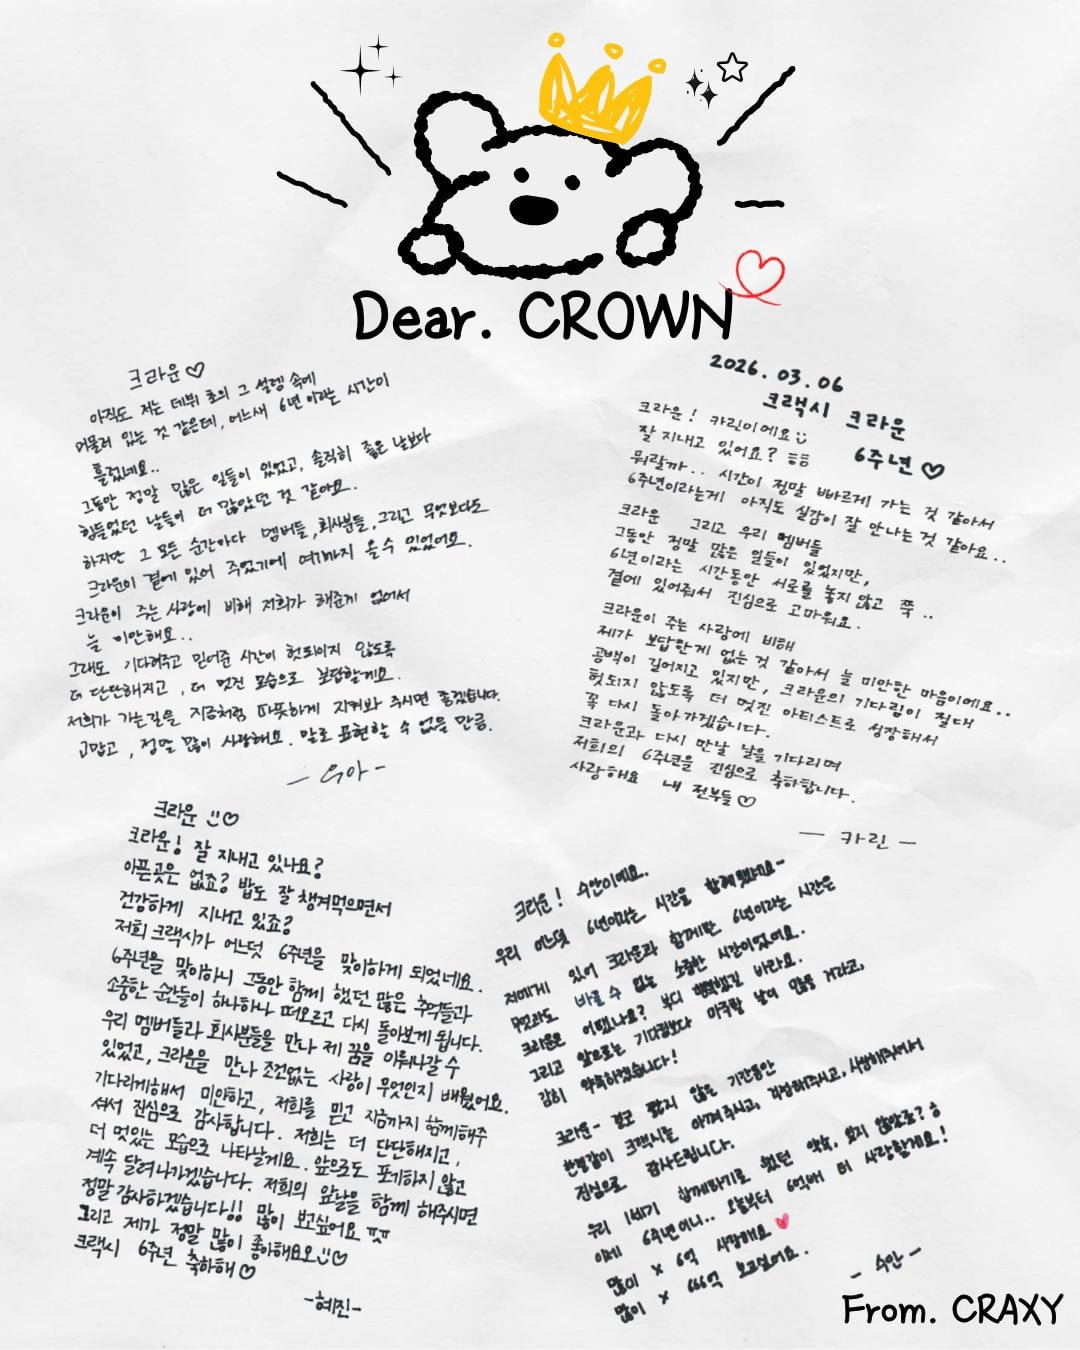 Dear. CROWN
크라운♡
아직도 저는 데뷔 초의 그 설렘 속에
머물러 있는 것 같은데, 어느새 6년이라는 시간이
흘렀네요..
그동안 정말 많은 일들이 있었고, 솔직히 좋은 날보다
힘들었던 날들이 더 많았던 것 같아요.
하지만 그 모든 순간마다 멤버들, 회사분들, 그리고 무엇보다도
크라운이 곁에 있어 주었기에 여기까지 올 수 있었어요.
크라운이 주는 사랑에 비해 저희가 해준게 없어서
늘 미안해요..
그래도 기다려주고 믿어준 시간이 헛되이지 않도록
더 단단해지고, 더 멋진 모습으로 보답할게요.
저희가 가는길을 지금처럼 따뜻하게 지켜봐 주시면 좋겠습니다.
고맙고, 정말 많이 사랑해요. 말로 표현할 수 없을 만큼.
- 우아 -
2026.03.06
크랙시 크라운
6주년♡
크라운! 카린이에요
잘 지내고 있어요? ㅎㅎ
뭐랄까.. 시간이 정말 빠르게 가는 것 같아서
6주년이라는게 아직도 실감이 잘 안나는 것 같아요..
크라운 그리고 우리 멤버들
그동안 정말 많은 일들이 있었지만,
6년이라는 시간동안 서로를 놓지 않고 쭉..
곁에 있어줘서 진심으로 고마워요.
크라운이 주는 사랑에 비해
제가 보답한게 없는 것 같아서 늘 미안한 마음이에요..
공백이 길어지고 있지만, 크라운의 기다림이 절대
헛되지 않도록 더 멋진 아티스트로 성장해서
꼭 다시 돌아가겠습니다.
크라운과 다시 만날 날을 기다리며
저희의 6주년을 진심으로 축하합니다.
사랑해요 내 전부들♡
- 카린 -
크라운 ♡
크라운! 잘 지내고 있나요?
아픈곳은 없죠? 밥도 잘 챙겨먹으면서
건강하게 지내고 있죠?
저희 크랙시가 어느덧 6주년을 맞이하게 되었네요.
6주년을 맞이하니 그동안 함께 했던 많은 추억들과
소중한 순간들이 하나하나 떠오르고 다시 돌아보게 됩니다.
우리 멤버들과 회사분들을 만나 제 꿈을 이뤄나갈 수
있었고, 크라운을 만나 조건없는 사랑이 무엇인지 배웠어요.
기다리게해서 미안하고, 저희를 믿고 지금까지 함께해주
셔서 진심으로 감사합니다. 저희는 더 단단해지고,
더 멋있는 모습으로 나타날게요. 앞으로도 포기하지 않고
계속 달려나가겠습니다. 저희의 앞날을 함께 해주시면
정말 감사하겠습니다!! 많이 보고싶어요 ㅠㅠ
그리고 제가 정말 많이 좋아해요오♡
크랙시 6주년 축하해♡
-혜진-
크라운! 수안이에요.
우리 어느덧 6년이라는 시간을 함께 했네요~
저에게 있어 크라운과 함께한 6년이라는 시간은
무엇과도 바꿀 수 없는 소중한 시간이었어요.
크라운은 어땠나요? 부디 행복했길 바라요.
그리고 앞으로는 기다림보다 미래랄 날이 많을 거라고,
감히 약속하겠습니다!
크라운~ 결코 짧지 않은 기간동안
한결같이 크랙시를 아껴주시고, 걱정해주시고, 사랑해주셔서
진심으로 감사드립니다.
우리 1세기 함께하기로 했던 약속, 잊지 않았죠? ㅎ
이제 6주년이니.. 오늘부터 6억배 더 사랑할게요!
많이 x 6억 사랑해요
많이 x 666억 보고싶어요.
- 수안 -
From. CRAXY